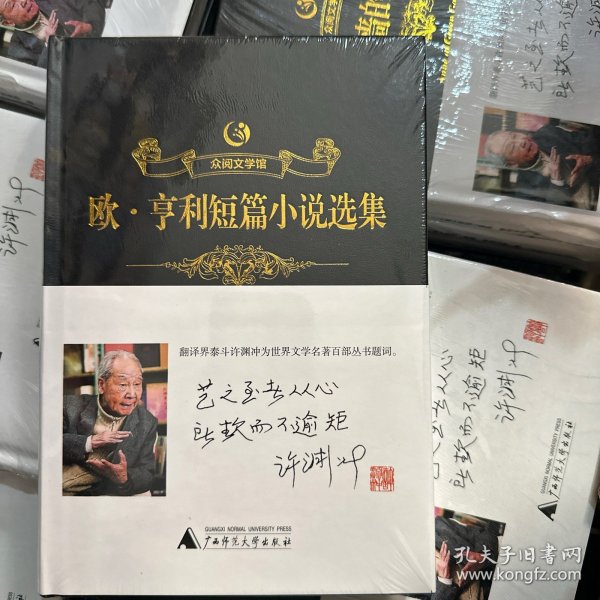 众阅文学馆
欧·亨利短篇小说选集
翻译界泰斗许渊冲为世界文学名著百部丛书题词。
艺之至者从心
所欲而不逾矩
许渊冲
GUANGXI NORMAL UNIVERSITY PRESS
广西师范大学出版社
许渊冲
艺之至者从心
所欲而不逾矩
许渊冲
从心
而不逾矩
许渊冲
GUANGXI NORMAL UNIVERSITY PRESS
广西师范大学出版社
孔夫子旧书网
www.kongfz.com